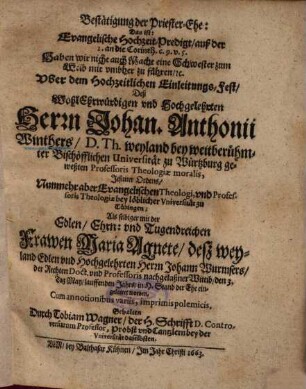 Bestätigung der Priester-Ehe:
Das ist:
Evangelische Hochzeit-Predigt / auß der
1. an die Corinth. c. 9. v. 5.
Haben wir nicht auch Macht eine Schwester zum
Weib mit vmbher zu führen / ꝛc.
Vber dem Hochzeitlichen Einleitungs-Fest /
Deß
WolEhrwürdigen vnd Hochgelehrten
Herrn Johan. Anthonii
Winthers / D. Th. weyland bey weitberühm-
ter Bischöfflichen Universität zu Würtzburg ge-
weßten Professoris Theologiæ moralis,
Jesuiter Ordens /
Nunmehr aber Evangelischen Theologi, vnd Profes-
soris Theologiæ bey löblicher Vniversität zu
Tübingen /
Als selbiger mit der
Edlen / Ehrn: vnd Tugendreichen
Frawen Maria Agnete / deß wey-
land Edlen vnd Hochgelehrten Herrn Johann Wurmsers /
der Rechten Doct. vnd Professoris nachgelaßner Wittib / den 3.
Tag May / lauffenden Jahrs / in H. Stand der Ehe ein-
geleitet worden /
Cum annotationibus variis, imprimis polemicis,
Gehalten
Durch Tobiam Wagner / der H. Schrifft D. Contro-
versiarum Professor, Probst vnd Cantzlern bey der
Vniversität daselbsten /
bey Balthasar Kühnen / Im Jahr Christi 1663.